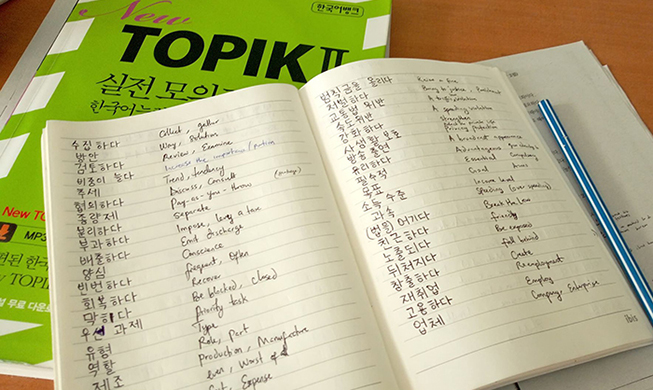 한국어뱅크
New
TOPIK II
실전 모의
한국어능
New TO
MP3
수집하다 Collect, gather
방안 Way, Solution
검토하다 Review, Examine
비중이 늘다 Increase the importance /
추세 Trend, tendency
협의하다 Discuss, Consult
종량제 Pay-as-you-throw (garbage)
분리하다 Separate
부과하다 Impose, levy a tax
배출하다 Emit discharge
양심 Conscience
빈번하다 frequent, often
회복하다 Recover
막히다 Be blocked, closed
우선 과제 Priority task
유형 Type
역할 Role, Part
제조 Production, Manufacture
벌칙금을 물리다
처벌하다
교통법 위반 A traffic violation
속도위반 A speeding violation
강화하다 Strengthen
사생활 보호 privacy protection
방송 출연 A broadcast appearance
유리하다 Advantageous
필수적 Essential
목표 Goal
소득 수준 Income level
과속 Speeding (over speeding)
(법을) 어기다 Break the law
친근하다 friendly
노출되다 Be exposed
뒤처지다 fall behind
창출하다 Create
재취업 Reemployment
고용하다 Employ
업체 Company, Enterprise
ibis